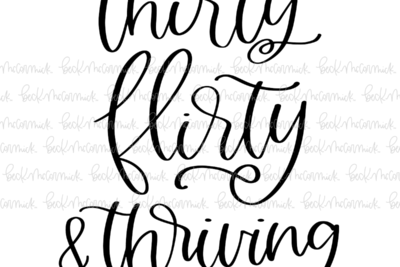 thirty
flirty
& thriving